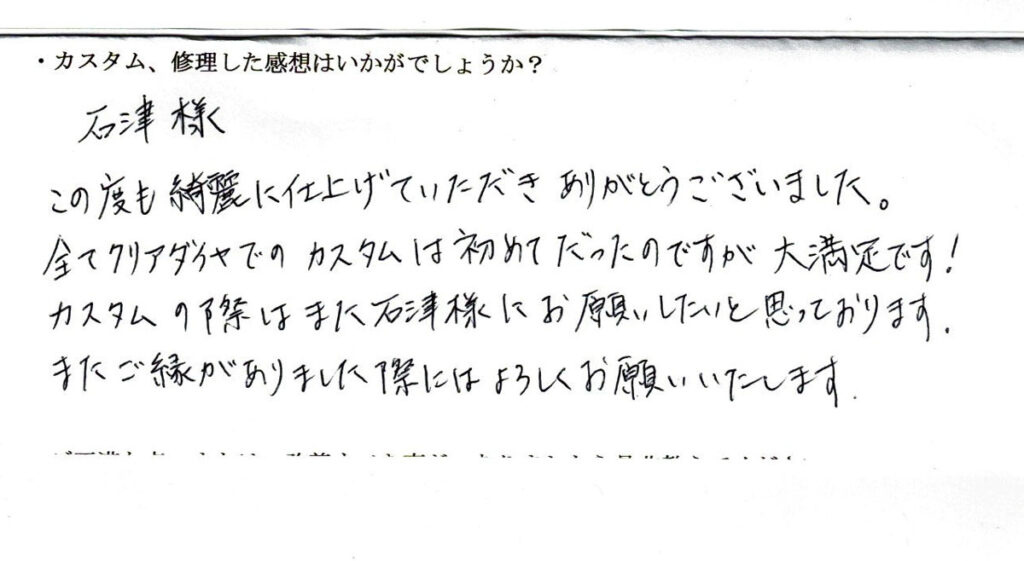 ・カスタム、修理した感想はいかがでしょうか？
石津様
この度も綺麗に仕上げていただき ありがとうございました。
全てクリアダイヤでの カスタムは初めてだったのですが 大満足です!
カスタムの際はまた石津様にお願いしたいと思っております.
またご縁がありました際にはよろしくお願いいたします.